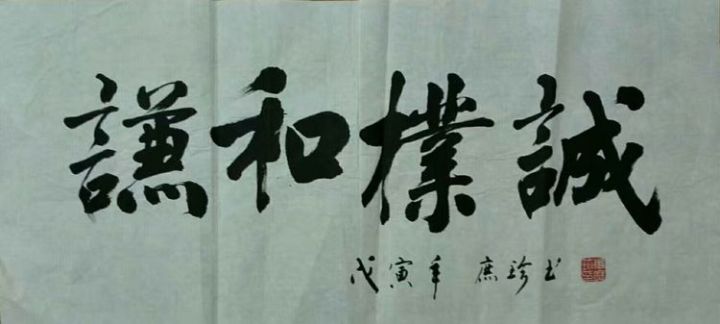 謙和樸誠
戊寅年 珍书